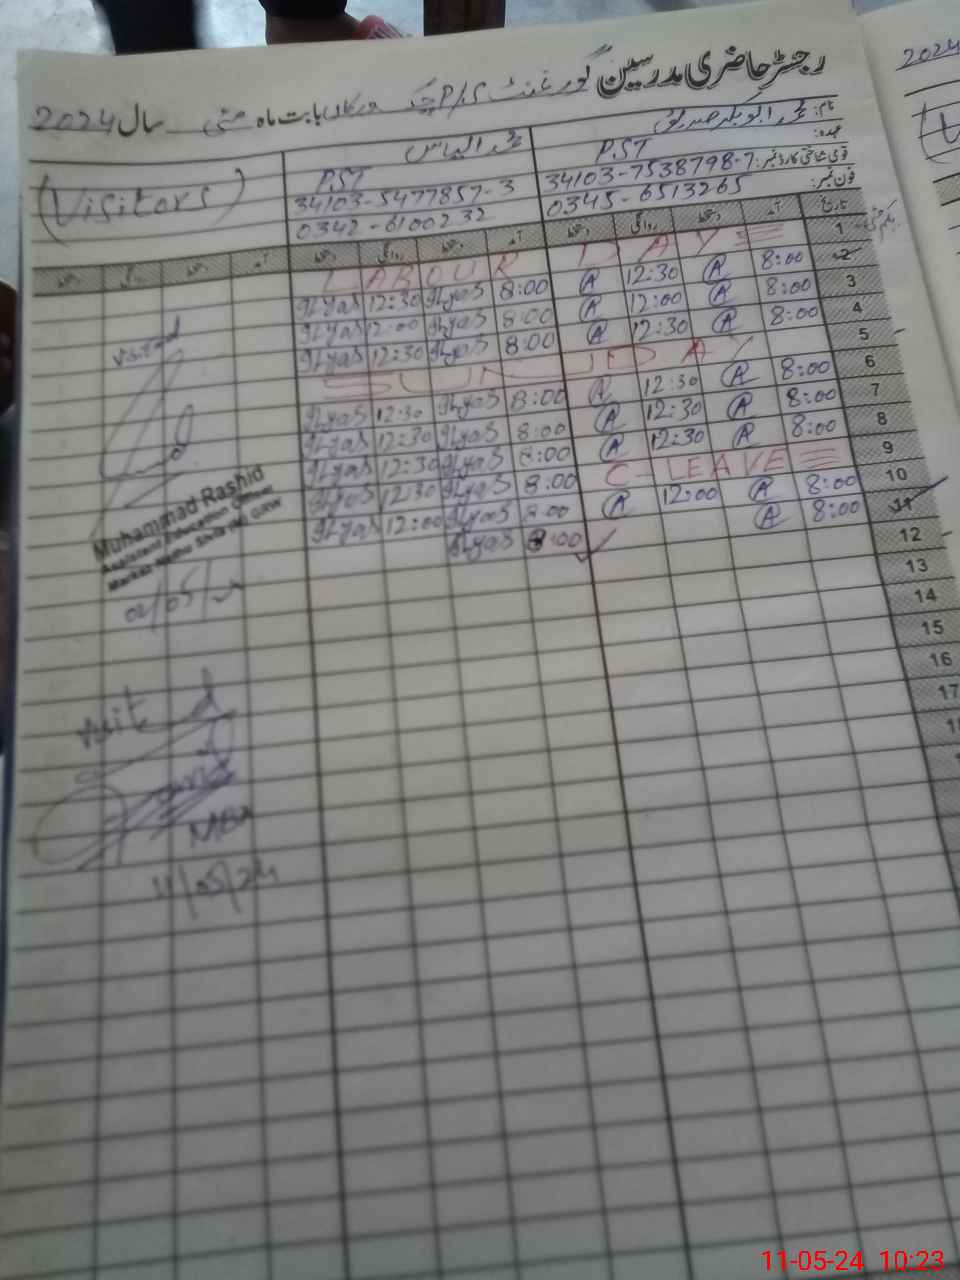 رجسٹر حاضری مدرسین گورنمنٹ P/S چک ورکاں بابت ماہ مئی سال 2024
نام: محمد ابوبکر صدیق محمد الیاس (Visitors)
عہدہ: PST PST
قومی شناختی کارڈ نمبر: 34103-7538798-7 34103-5477857-3
فون نمبر: 0345-6513265 0342-6100232
تاریخ آمد دستخط روانگی دستخط آمد دستخط روانگی دستخط آمد دستخط روانگی دستخط
1 LABOUR DAY
2 8:00 A 12:30 A 8:00 Ilyas 12:30 Ilyas
3 8:00 A 12:00 A 8:00 Ilyas 12:00 Ilyas
4 8:00 A 12:30 A 8:00 Ilyas 12:30 Ilyas
5 SUNDAY
6 8:00 A 12:30 A 8:00 Ilyas 12:30 Ilyas
7 8:00 A 12:30 A 8:00 Ilyas 12:30 Ilyas
8 8:00 A 12:30 A 8:00 Ilyas 12:30 Ilyas
9 C-LEAVE 8:00 Ilyas 12:30 Ilyas
10 8:00 A 12:00 A 8:00 Ilyas 12:00 Ilyas
11 8:00 A 8:00 Ilyas
12
13
14
15
16
17
visited
Muhammad Rashid
Assistant Education Officer
visited
11/05/24
2024
11-05-24 10:23